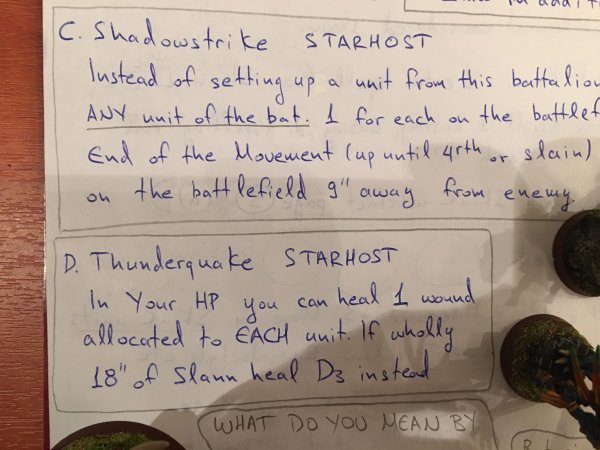 C. Shadowstrike STARHOST
Instead of setting up a unit from this battalion
ANY unit of the bat. 1 for each on the battlef
End of the Movement (up until 4rth or slain)
on the battlefield 9" away from enemy.
D. Thunderquake STARHOST
In Your HP you can heal 1 wound
allocated to EACH unit. If wholly
18" of Slann heal D3 instead
WHAT DO YOU MEAN BY